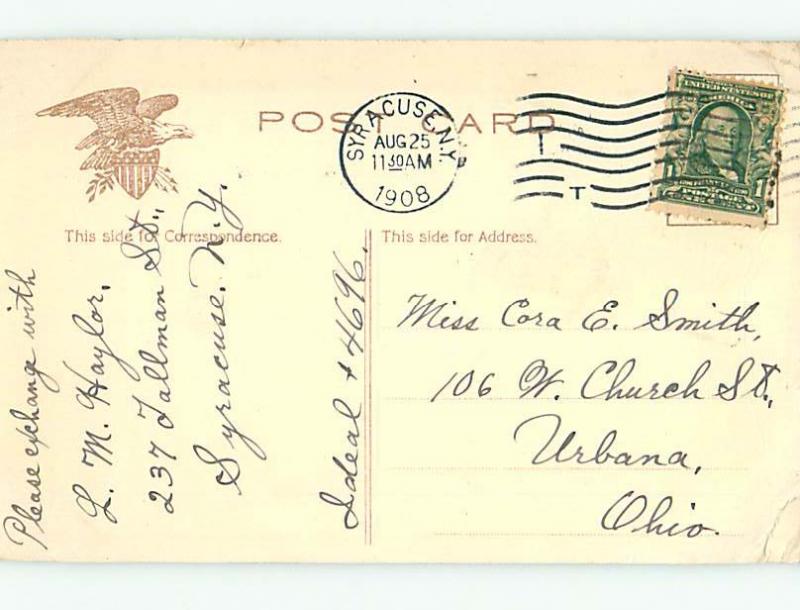 POST CARD
SYRACUSE, N.Y.
AUG 25
11 30 AM
1908
T
T
UNITED STATES OF AMERICA
1 1
POSTAGE
ONE CENT
This side for Correspondence.
This side for Address.
Please exchange with
L. M. Haylor,
237 Tallman St.,
Syracuse. N.Y.
Ideal # 4696.
Miss Cora E. Smith,
106 W. Church St.,
Urbana,
Ohio.